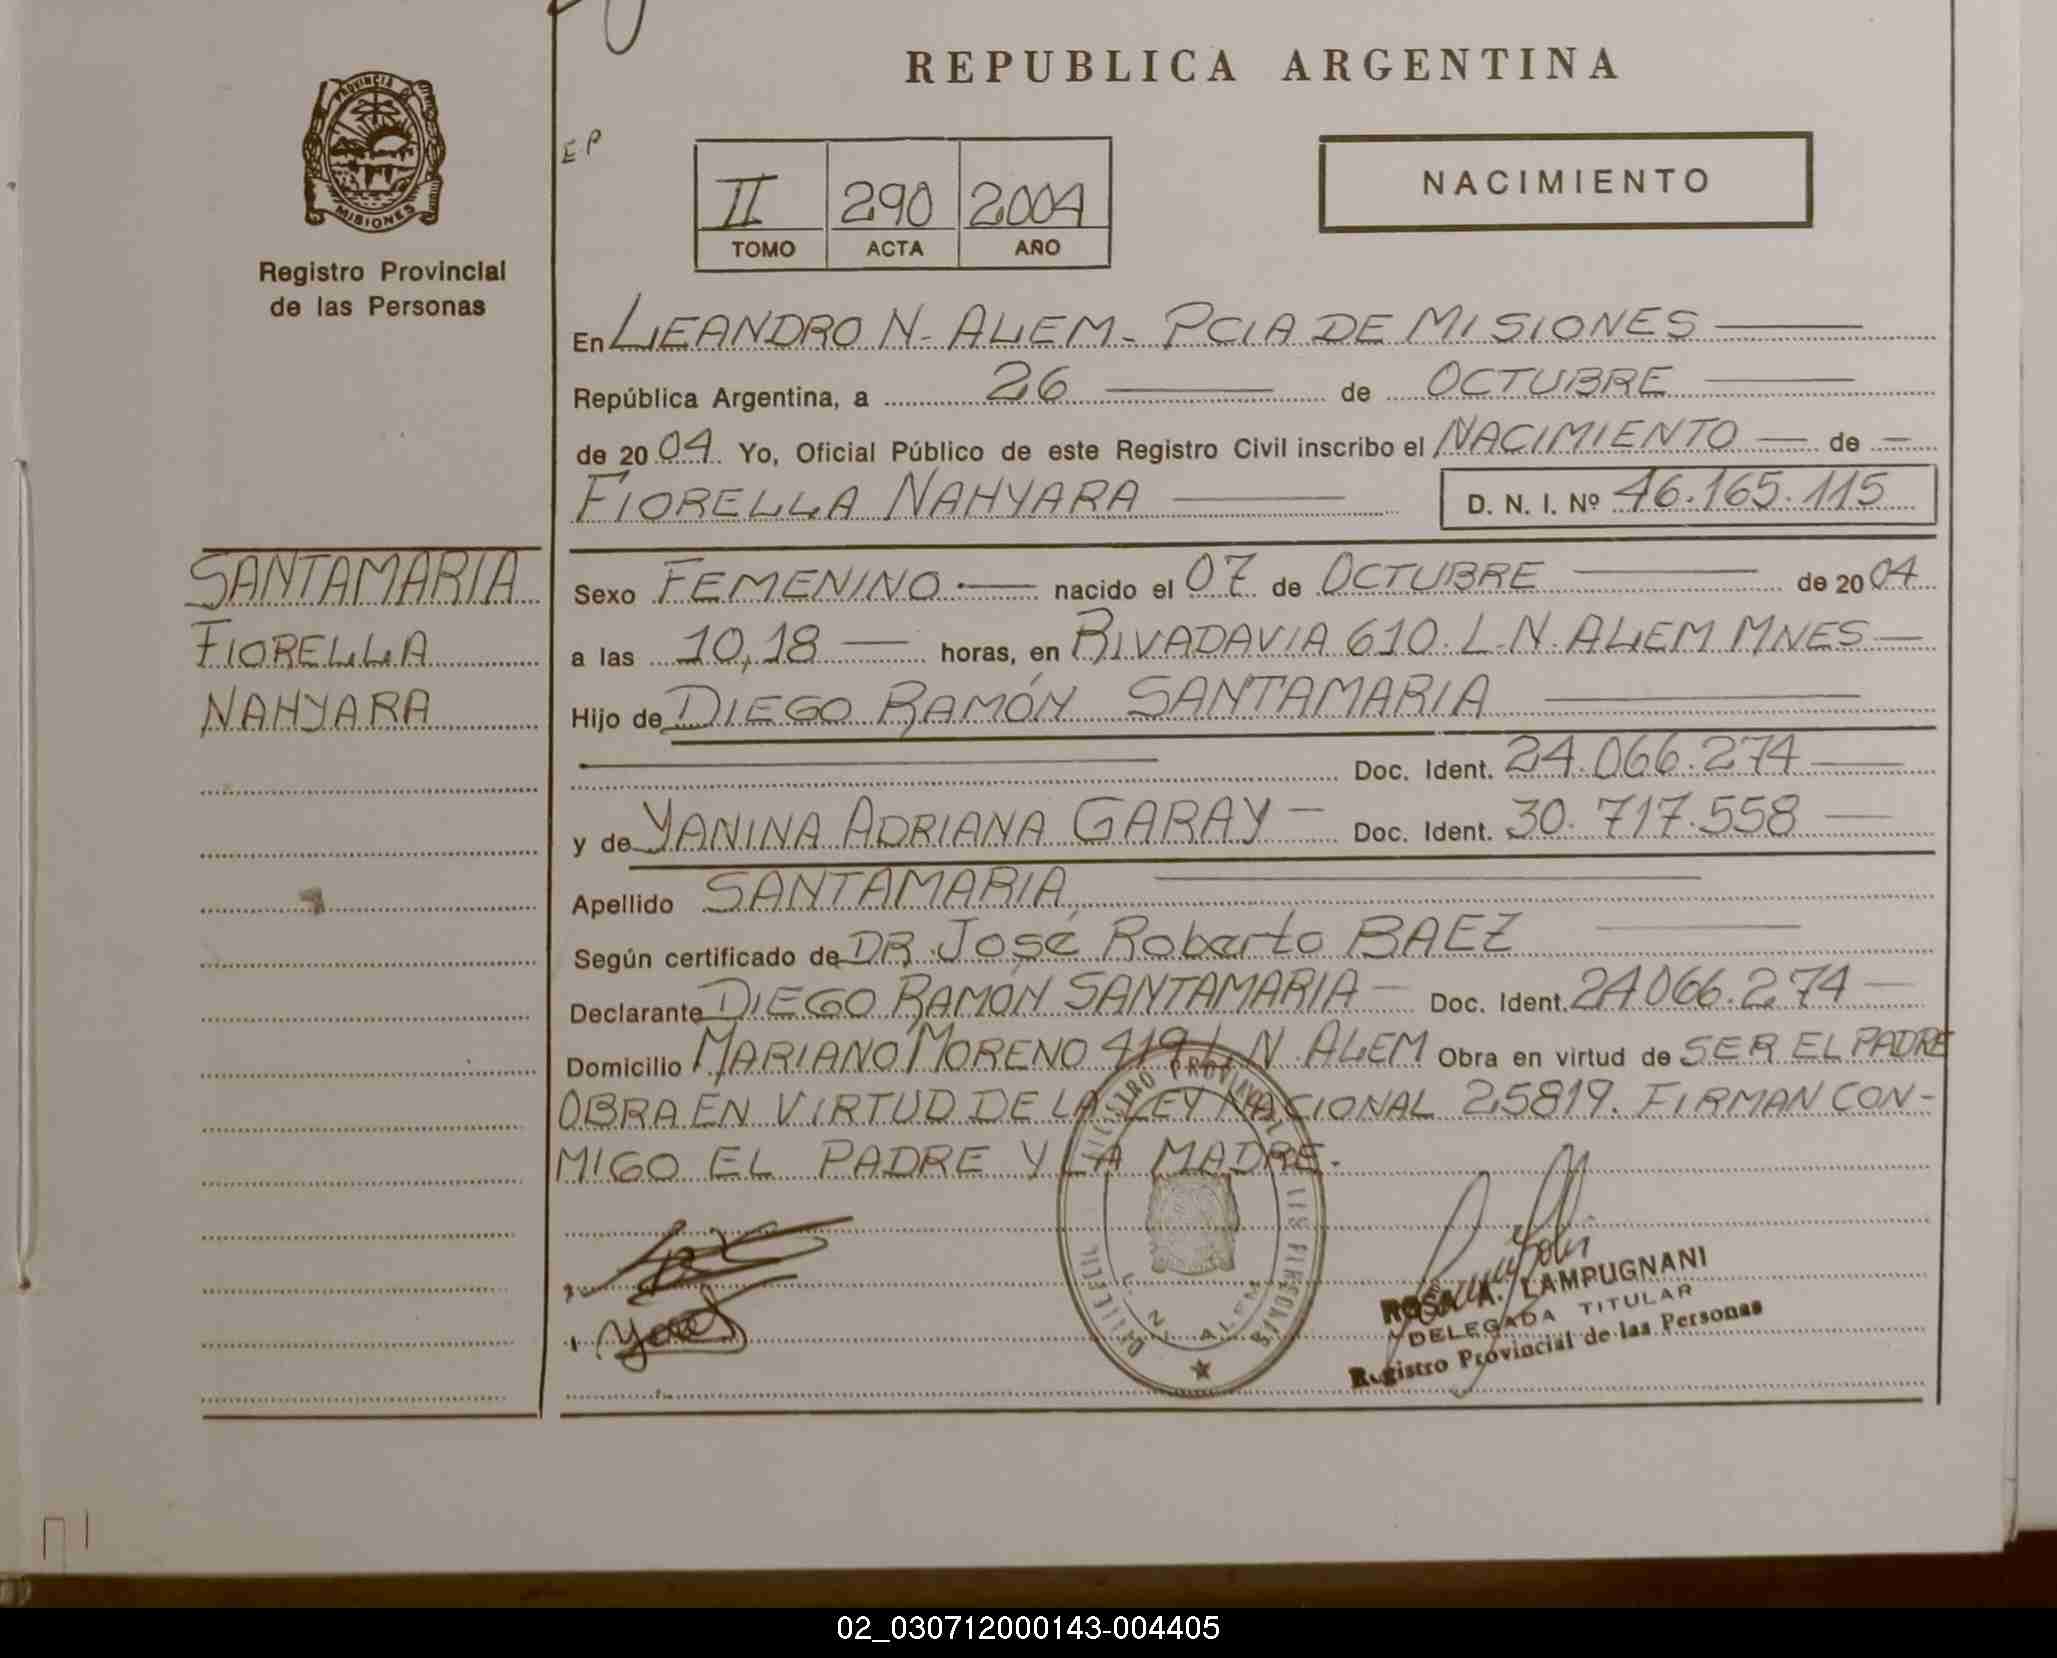 REPUBLICA ARGENTINA
PROVINCIA DE
MISIONES
Registro Provincial
de las Personas
E.P
II 290 2004
TOMO ACTA AÑO
NACIMIENTO
En LEANDRO N. ALEM - PCIA DE MISIONES
República Argentina, a 26 de OCTUBRE
de 2004. Yo, Oficial Público de este Registro Civil inscribo el NACIMIENTO de
FIORELLA NAHYARA D. N. I. Nº 46.165.115
SANTAMARIA
FIORELLA
NAHYARA
Sexo FEMENINO nacido el 07 de OCTUBRE de 2004
a las 10,18 horas, en RIVADAVIA 610. L.N. ALEM MNES
Hijo de DIEGO RAMÓN SANTAMARIA
Doc. Ident. 24.066.274
y de YANINA ADRIANA GARAY Doc. Ident. 30.717.558
Apellido SANTAMARIA
Según certificado de DR. José Roberto BAEZ
Declarante DIEGO RAMÓN SANTAMARIA Doc. Ident. 24.066.274
Domicilio MARIANO MORENO 419 L.N. ALEM Obra en virtud de SER EL PADRE
OBRA EN VIRTUD DE LA LEY NACIONAL 25819. FIRMAN CON-
MIGO EL PADRE Y LA MADRE.
L. N. ALEM
ROSA A. LAMPUGNANI
DELEGADA TITULAR
Registro Provincial de las Personas
02_030712000143-004405